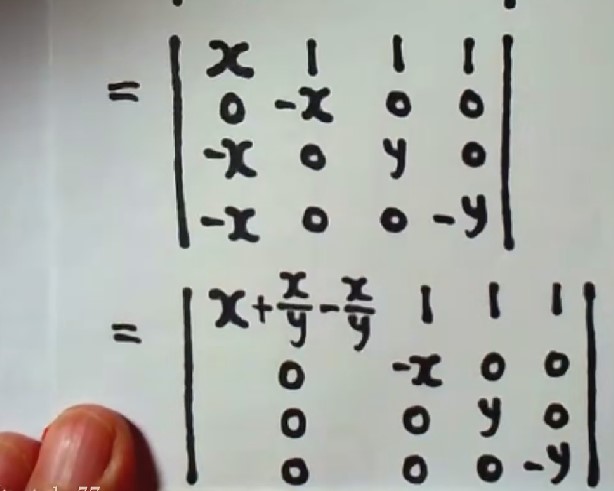 = | x 1 1 1 |
| 0 -x 0 0 |
| -x 0 y 0 |
| -x 0 0 -y |
= | x + x/y - x/y 1 1 1 |
| 0 -x 0 0 |
| 0 0 y 0 |
| 0 0 0 -y |